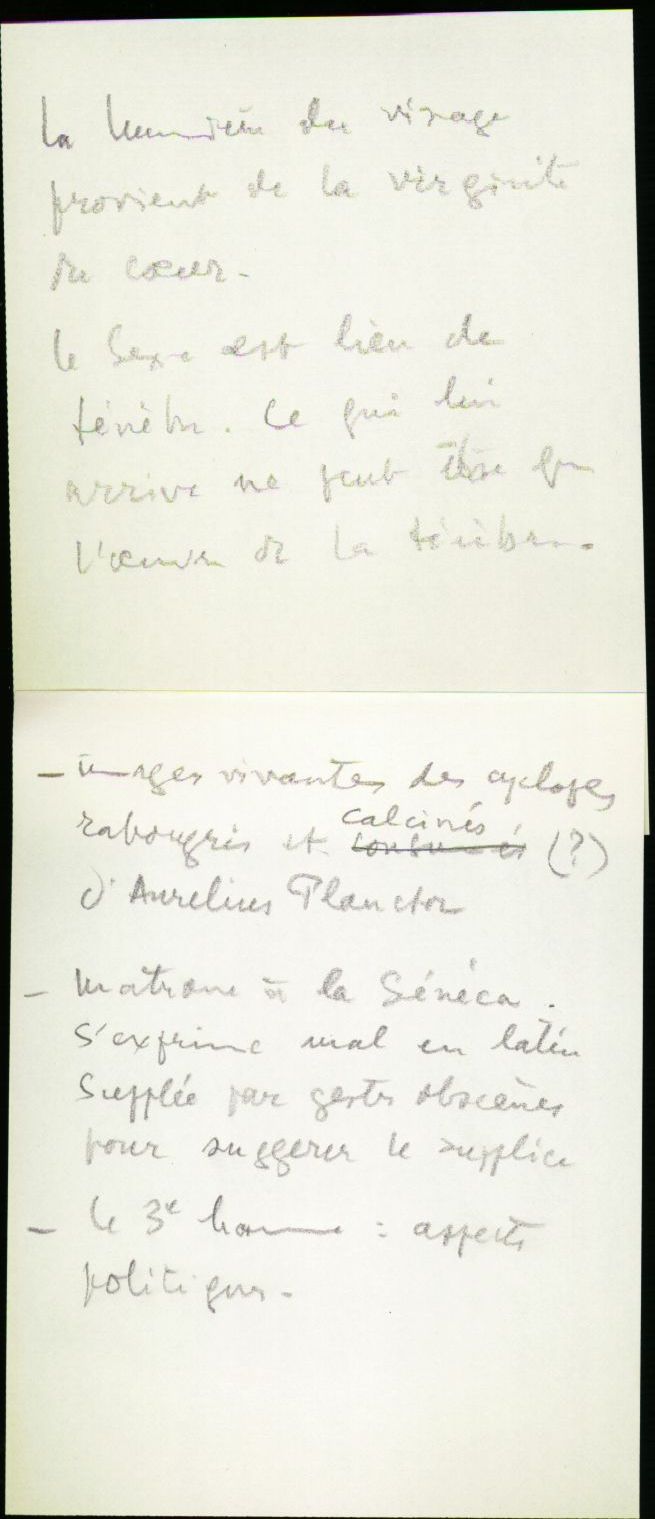 la lumière du visage
provient de la virginité
du cœur.
le Sexe est lieu de
ténèbre. Ce qui lui
arrive ne peut être que
l'œuvre de la ténèbre.
– images vivantes des cyclopes
rabougris et calcinés (?)
d'Aurelius Planctor
– matrone à la Sénéca.
S'exprime mal en latin
Supplée par gestes obscènes
pour suggerer le supplice
– le 3e homme : aspects
politiques.